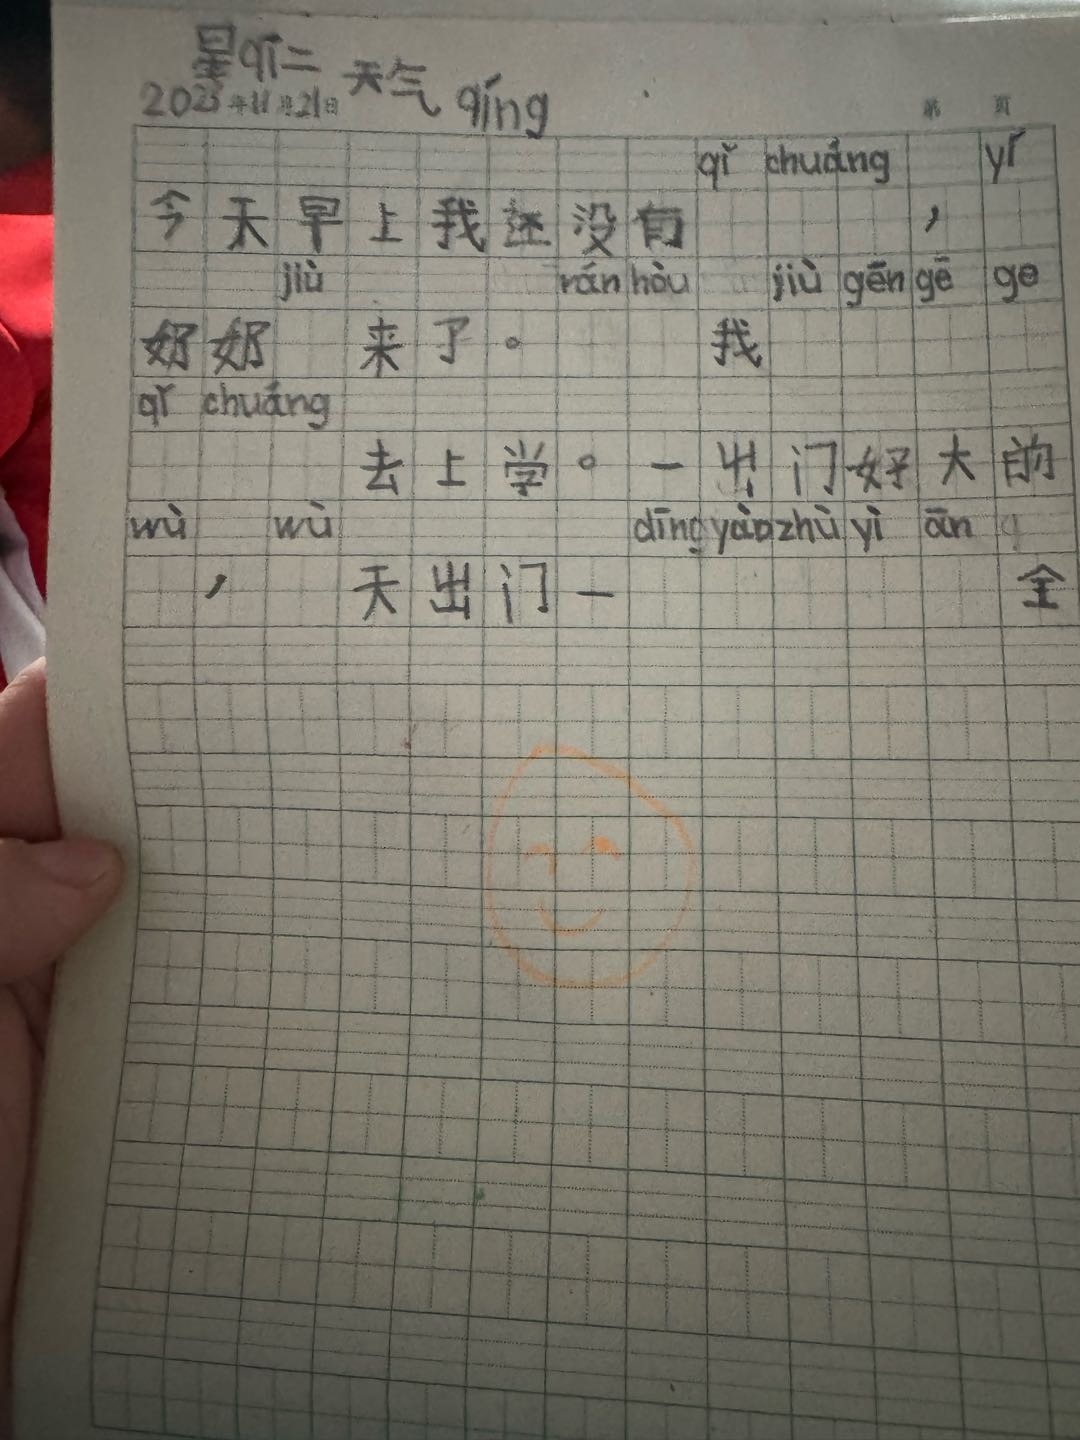 星qī二 天气 qíng
2023年11月21日 第 页
qǐ chuáng yǐ
今天早上我还没有 ,
jiù rán hòu jiù gēn gē ge
奶奶 来了。 我
qǐ chuáng
去上学。一出门好大的
wù wù dīng yào zhù yì ān q
, 天出门一 全